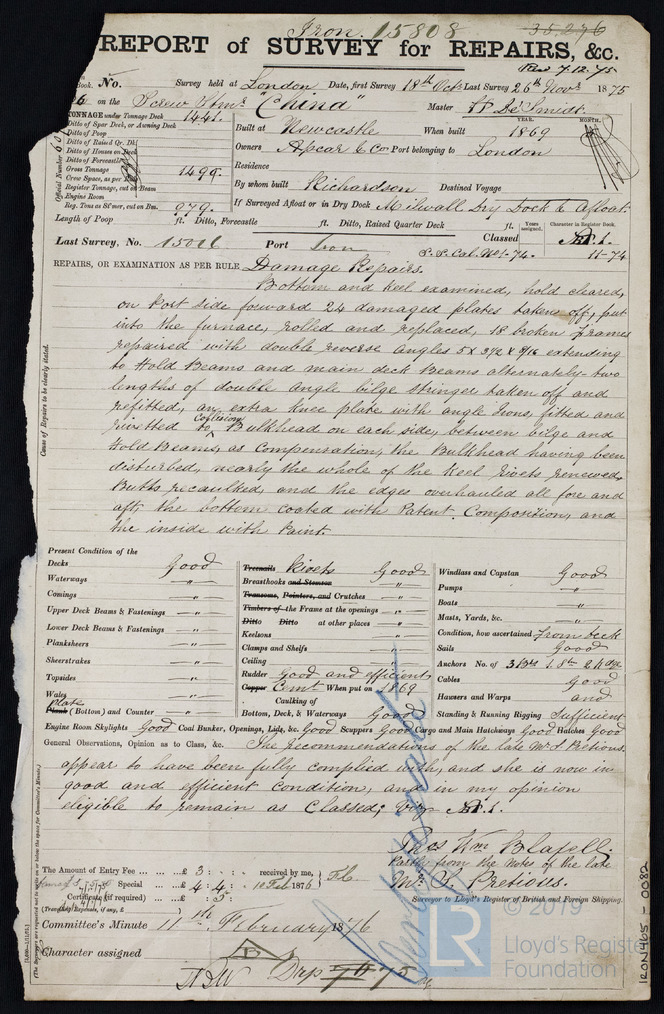 Iron 15808
35.276
REPORT of SURVEY for REPAIRS, &c.
Rec 7.12.75
No. Survey held at London Date, first Survey 18th Octr Last Survey 26th Novr 1875
on the Screw Stmr "China" Master H De Smidt.
TONNAGE under Tonnage Deck 1441.
Ditto of Spar Deck, or Awning Deck
Ditto of Poop
Ditto of Raised Qr. Dk.
Ditto of Houses on Deck
Ditto of Forecastle
Gross Tonnage 1499.
Crew Space, as per
Register Tonnage, cut on Beam
Engine Room
Reg. Tons as St'mer, cut on Bm. 979.
Official Number
Built at Newcastle When built YEAR. 1869 MONTH.
Owners Apcar & Co Port belonging to London
Residence
By whom built Richardson Destined Voyage
If Surveyed Afloat or in Dry Dock Millwall Dry Dock & Afloat.
Length of Poop ft. Ditto, Forecastle ft. Ditto, Raised Quarter Deck ft.
Years assigned. Character in Register Book.
Last Survey, No. 15006 Port Iron Classed A1.
S.S. Cal. No1-74. 11-74
REPAIRS, OR EXAMINATION AS PER RULE Damage Repairs.
Cause of Repairs to be clearly stated.
Bottom and keel examined, hold cleared,
on Port side forward 24 damaged plates taken off, put
into the furnace, rolled and replaced, 18 broken frames
repaired with double reverse angles 5 x 3 1/2 x 9/16 extending
to Hold Beams and main deck Beams alternately two
lengths of double angle bilge stringer taken off and
refitted, an extra knee plate with angle Irons, fitted and
rivetted to Collision Bulkhead on each side, between bilge and
Hold Beams, as Compensation, the Bulkhead having been
disturbed, nearly the whole of the Keel rivets renewed,
Butts recaulked, and the edges overhauled all fore and
aft, the bottom coated with Patent Composition, and
the inside with Paint.
Present Condition of the
Decks Good
Waterways "
Comings "
Upper Deck Beams & Fastenings "
Lower Deck Beams & Fastenings "
Planksheers "
Sheerstrakes "
Topsides "
Wales "
Plank plate (Bottom) and Counter "
Treenails Rivets Good
Breasthooks and Stemson "
Transoms, Pointers, and Crutches "
Timbers of the Frame at the openings "
Ditto Ditto at other places "
Keelsons "
Clamps and Shelfs "
Ceiling "
Rudder Good and efficient
Copper Cemt When put on 1869
Caulking of
Bottom, Deck, & Waterways Good
Windlass and Capstan Good
Pumps "
Boats "
Masts, Yards, &c. "
Condition, how ascertained From deck
Sails Good
Anchors No. of 3 Brs 1 St 2 Kdge
Cables Good
Hawsers and Warps and
Standing & Running Rigging Sufficient
Engine Room Skylights Good Coal Bunker, Openings, Lids, &c. Good Scuppers Good Cargo and Main Hatchways Good Hatches Good
General Observations, Opinion as to Class, &c. The recommendations of the late Mr S Pretious.
appear to have been fully complied with, and she is now in
good and efficient condition, and in my opinion
eligible to remain as Classed; Viz A1.
Thos Wm Blafell.
Partly from the Notes of the late
Mr S. Pretious.
Surveyor to Lloyd's Register of British and Foreign Shipping.
The Amount of Entry Fee £ 3 : : received by me,
Special £ 4 : 4 : 10 Feb 1876
Certificate (if required) : 5 :
(Travelling Expenses, if any, £ )
Committee's Minute 11th February 1876
Character assigned
Drp 75
(The Surveyors are requested not to write on or below the space for Committee's Minute.)
IRON405-0082
© 2019
LR
Lloyd's Register
Foundation